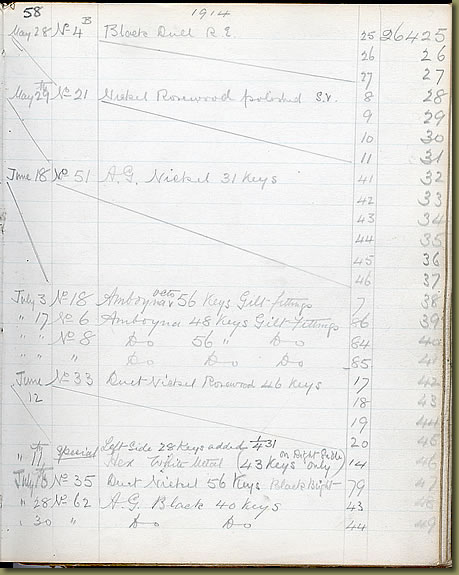 58 1914
May 28 No 4 B Black Duet R.E. 25 26425
26 26
27 27
May 29 No 21 Nickel Rosewood polished S.V. 8 28
9 29
10 30
11 31
June 18 No 51 A.G. Nickel 31 Keys 41 32
42 33
43 34
44 35
45 36
46 37
July 3 No 18 Amboyna 56 Keys Gilt fittings 7 38
" 17 No 6 Amboyna 48 Keys Gilt fittings 86 39
" " No 8 Do 56 " Do 84 40
" " " Do Do Do 85 41
June 12 No 33 Duet Nickel Rosewood 46 Keys 17 42
18 43
19 44
20 45
" special Left Side 28 Keys added on Right Side
Hex White Metal (43 Keys only) 14 46
July No 35 Duet Nickel 56 Keys Black Bright 79 47
" 28 No 62 A.G. Black 40 Keys 43 48
" 30 " Do Do 44 49